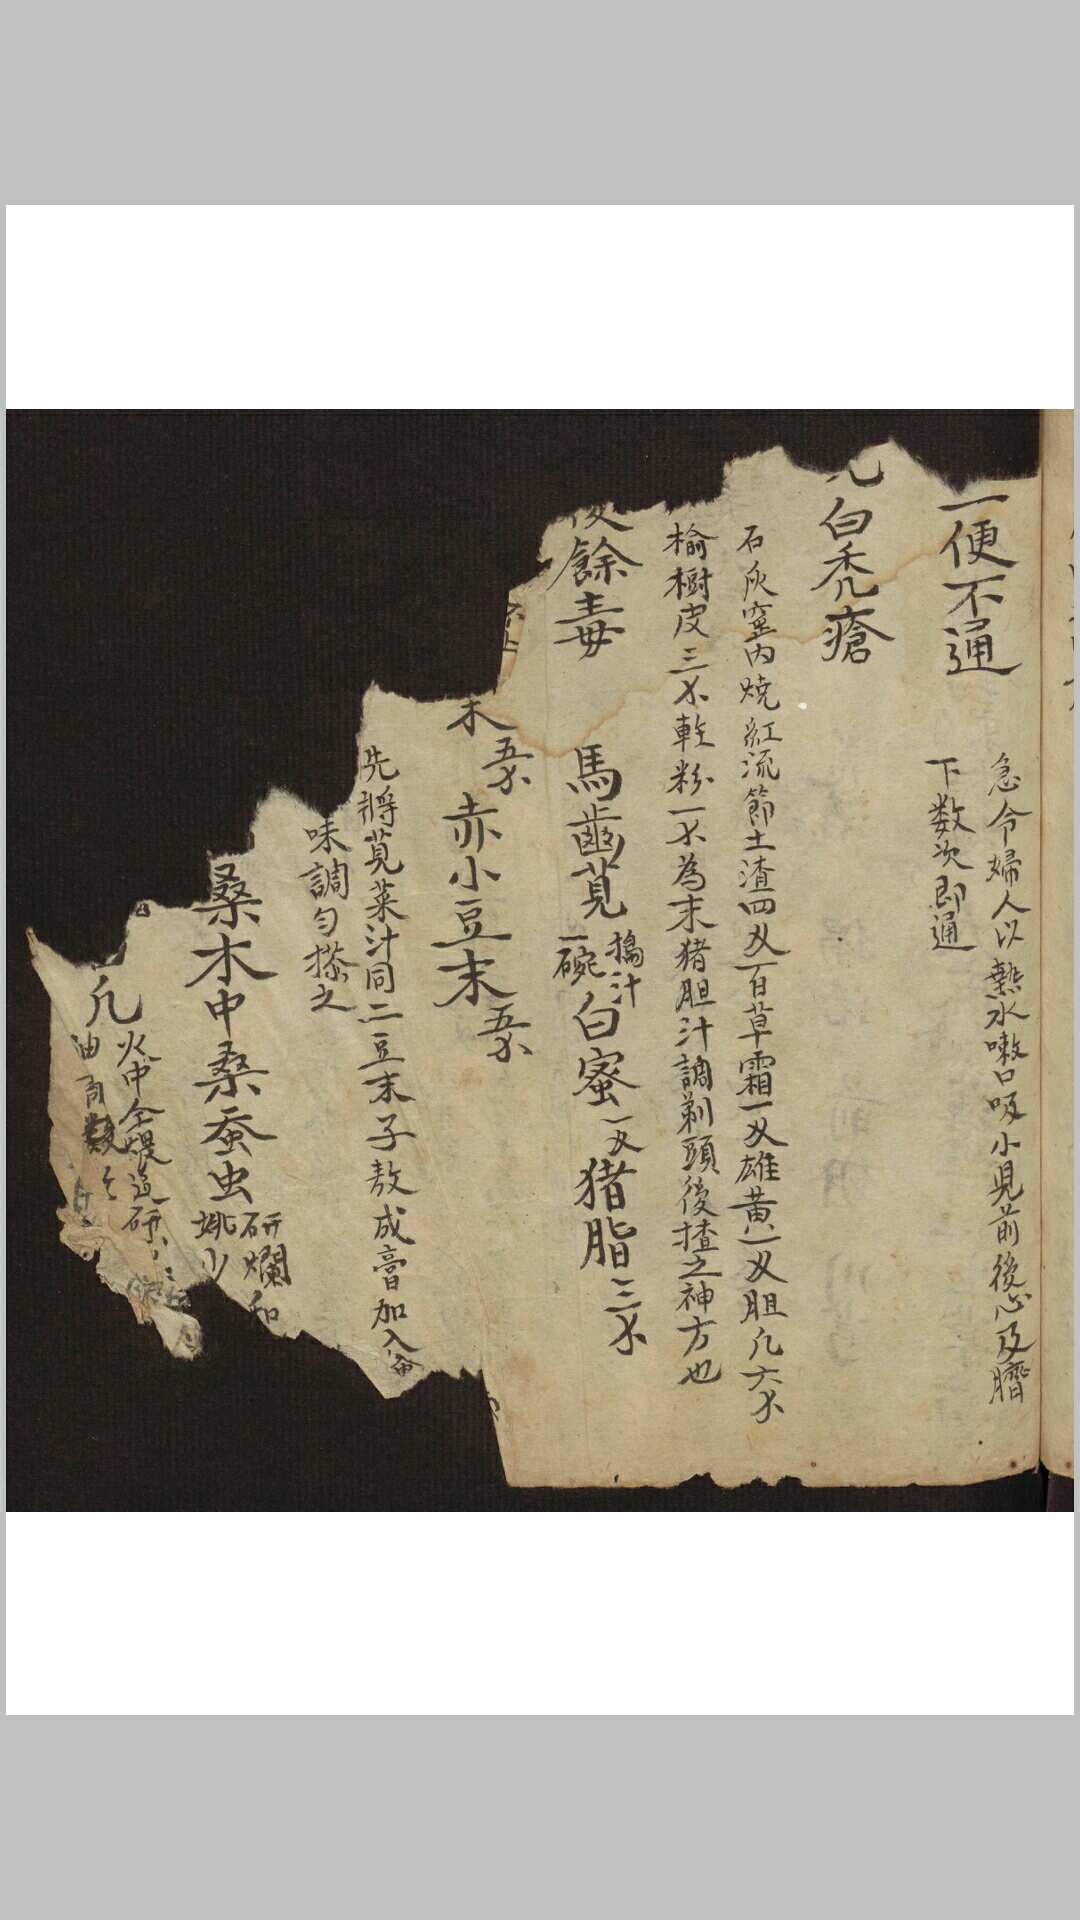 便不通
急令婦人以熱水嗽口吸小児前後心及臍
下数次即通
白禿瘡
石灰窰内燒紅流節土渣四又百草霜一又雄黄一又胆凡六个
榆樹皮三个輕粉一个為末猪胆汁調剃頭後搽之神方也
餘毒
馬齒莧搗汁一碗白蜜一又猪脂三个
末五个赤小豆末五个
先將莧菜汁同二豆末子熬成膏加入
味調勻搽之
桑木中桑蚕虫研爛和
少
凡火中全煨過研
油